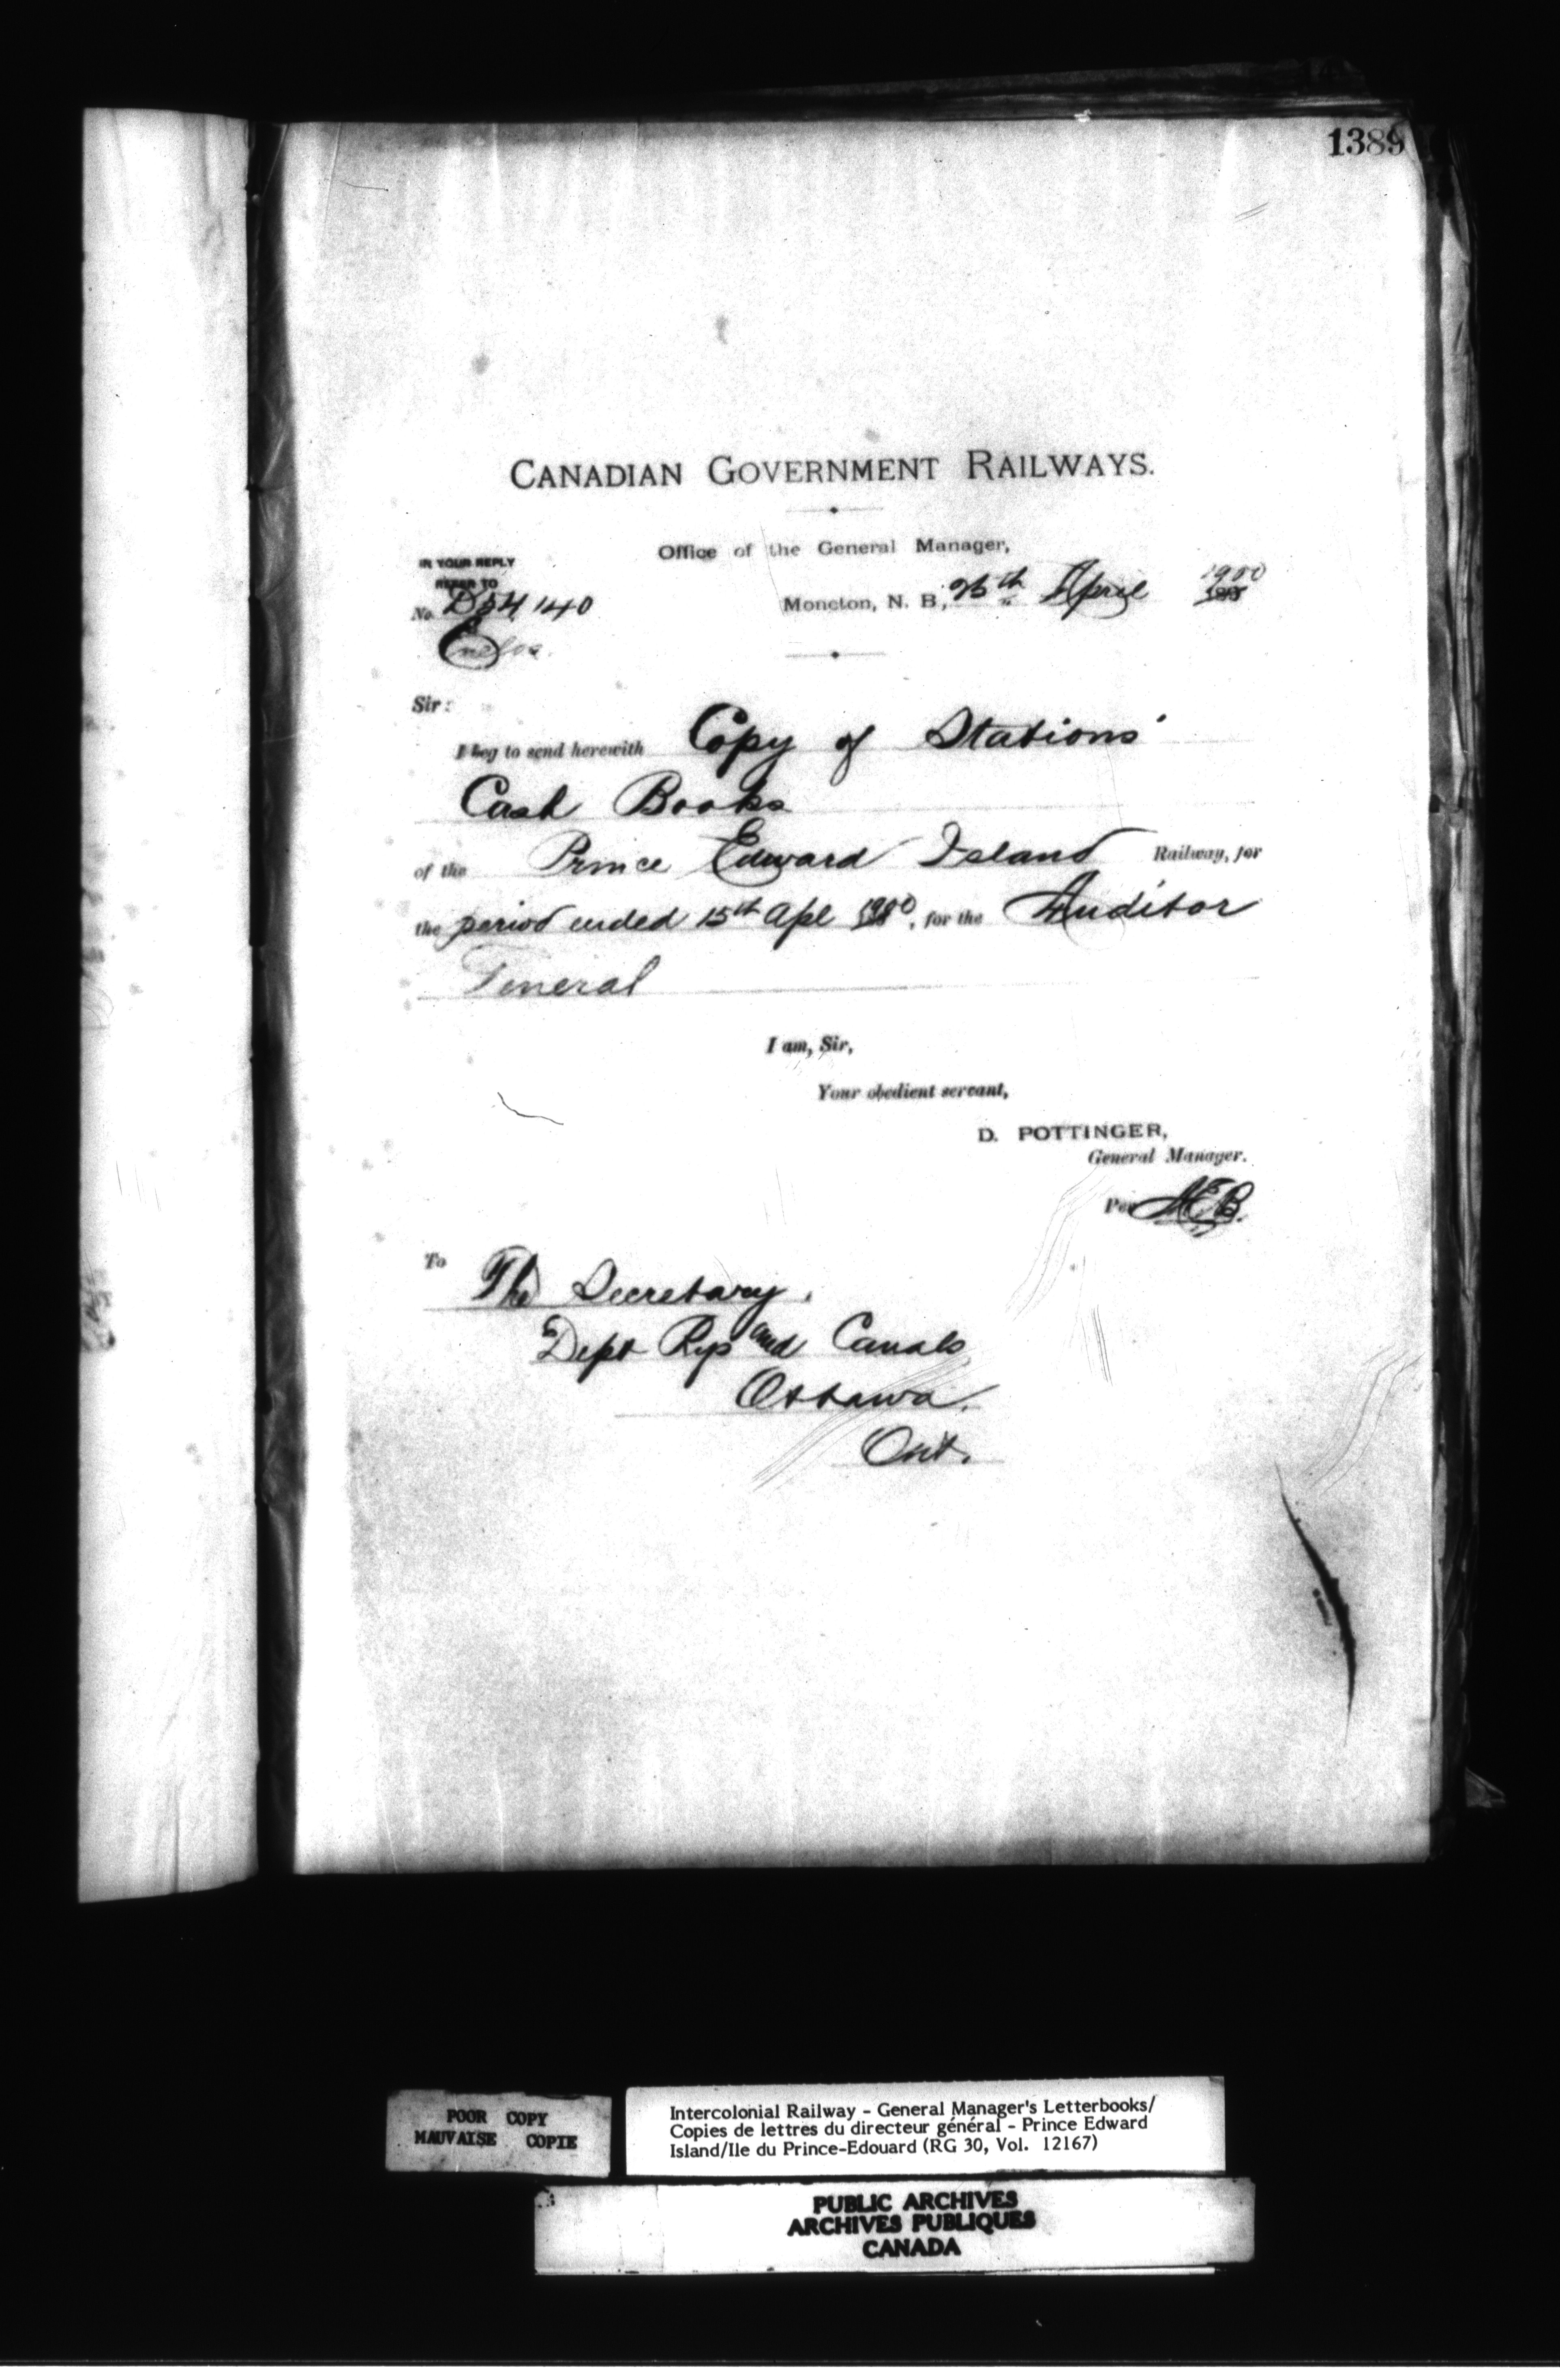 1389
CANADIAN GOVERNMENT RAILWAYS.
Office of the General Manager,
IN YOUR REPLY
REFER TO
No. D54140
Moncton, N. B., 25th April 1900
Enclos.
Sir:
I beg to send herewith Copy of Stations'
Cash Books
of the Prince Edward Island Railway, for
the period ended 15th Apl 1900, for the Auditor
General
I am, Sir,
Your obedient servant,
D. POTTINGER,
General Manager.
Per
To The Secretary.
Dept Rys and Canals
Ottawa.
Ont.
POOR COPY
MAUVAISE COPIE
Intercolonial Railway - General Manager's Letterbooks/
Copies de lettres du directeur général - Prince Edward
Island/Ile du Prince-Edouard (RG 30, Vol. 12167)
PUBLIC ARCHIVES
ARCHIVES PUBLIQUES
CANADA